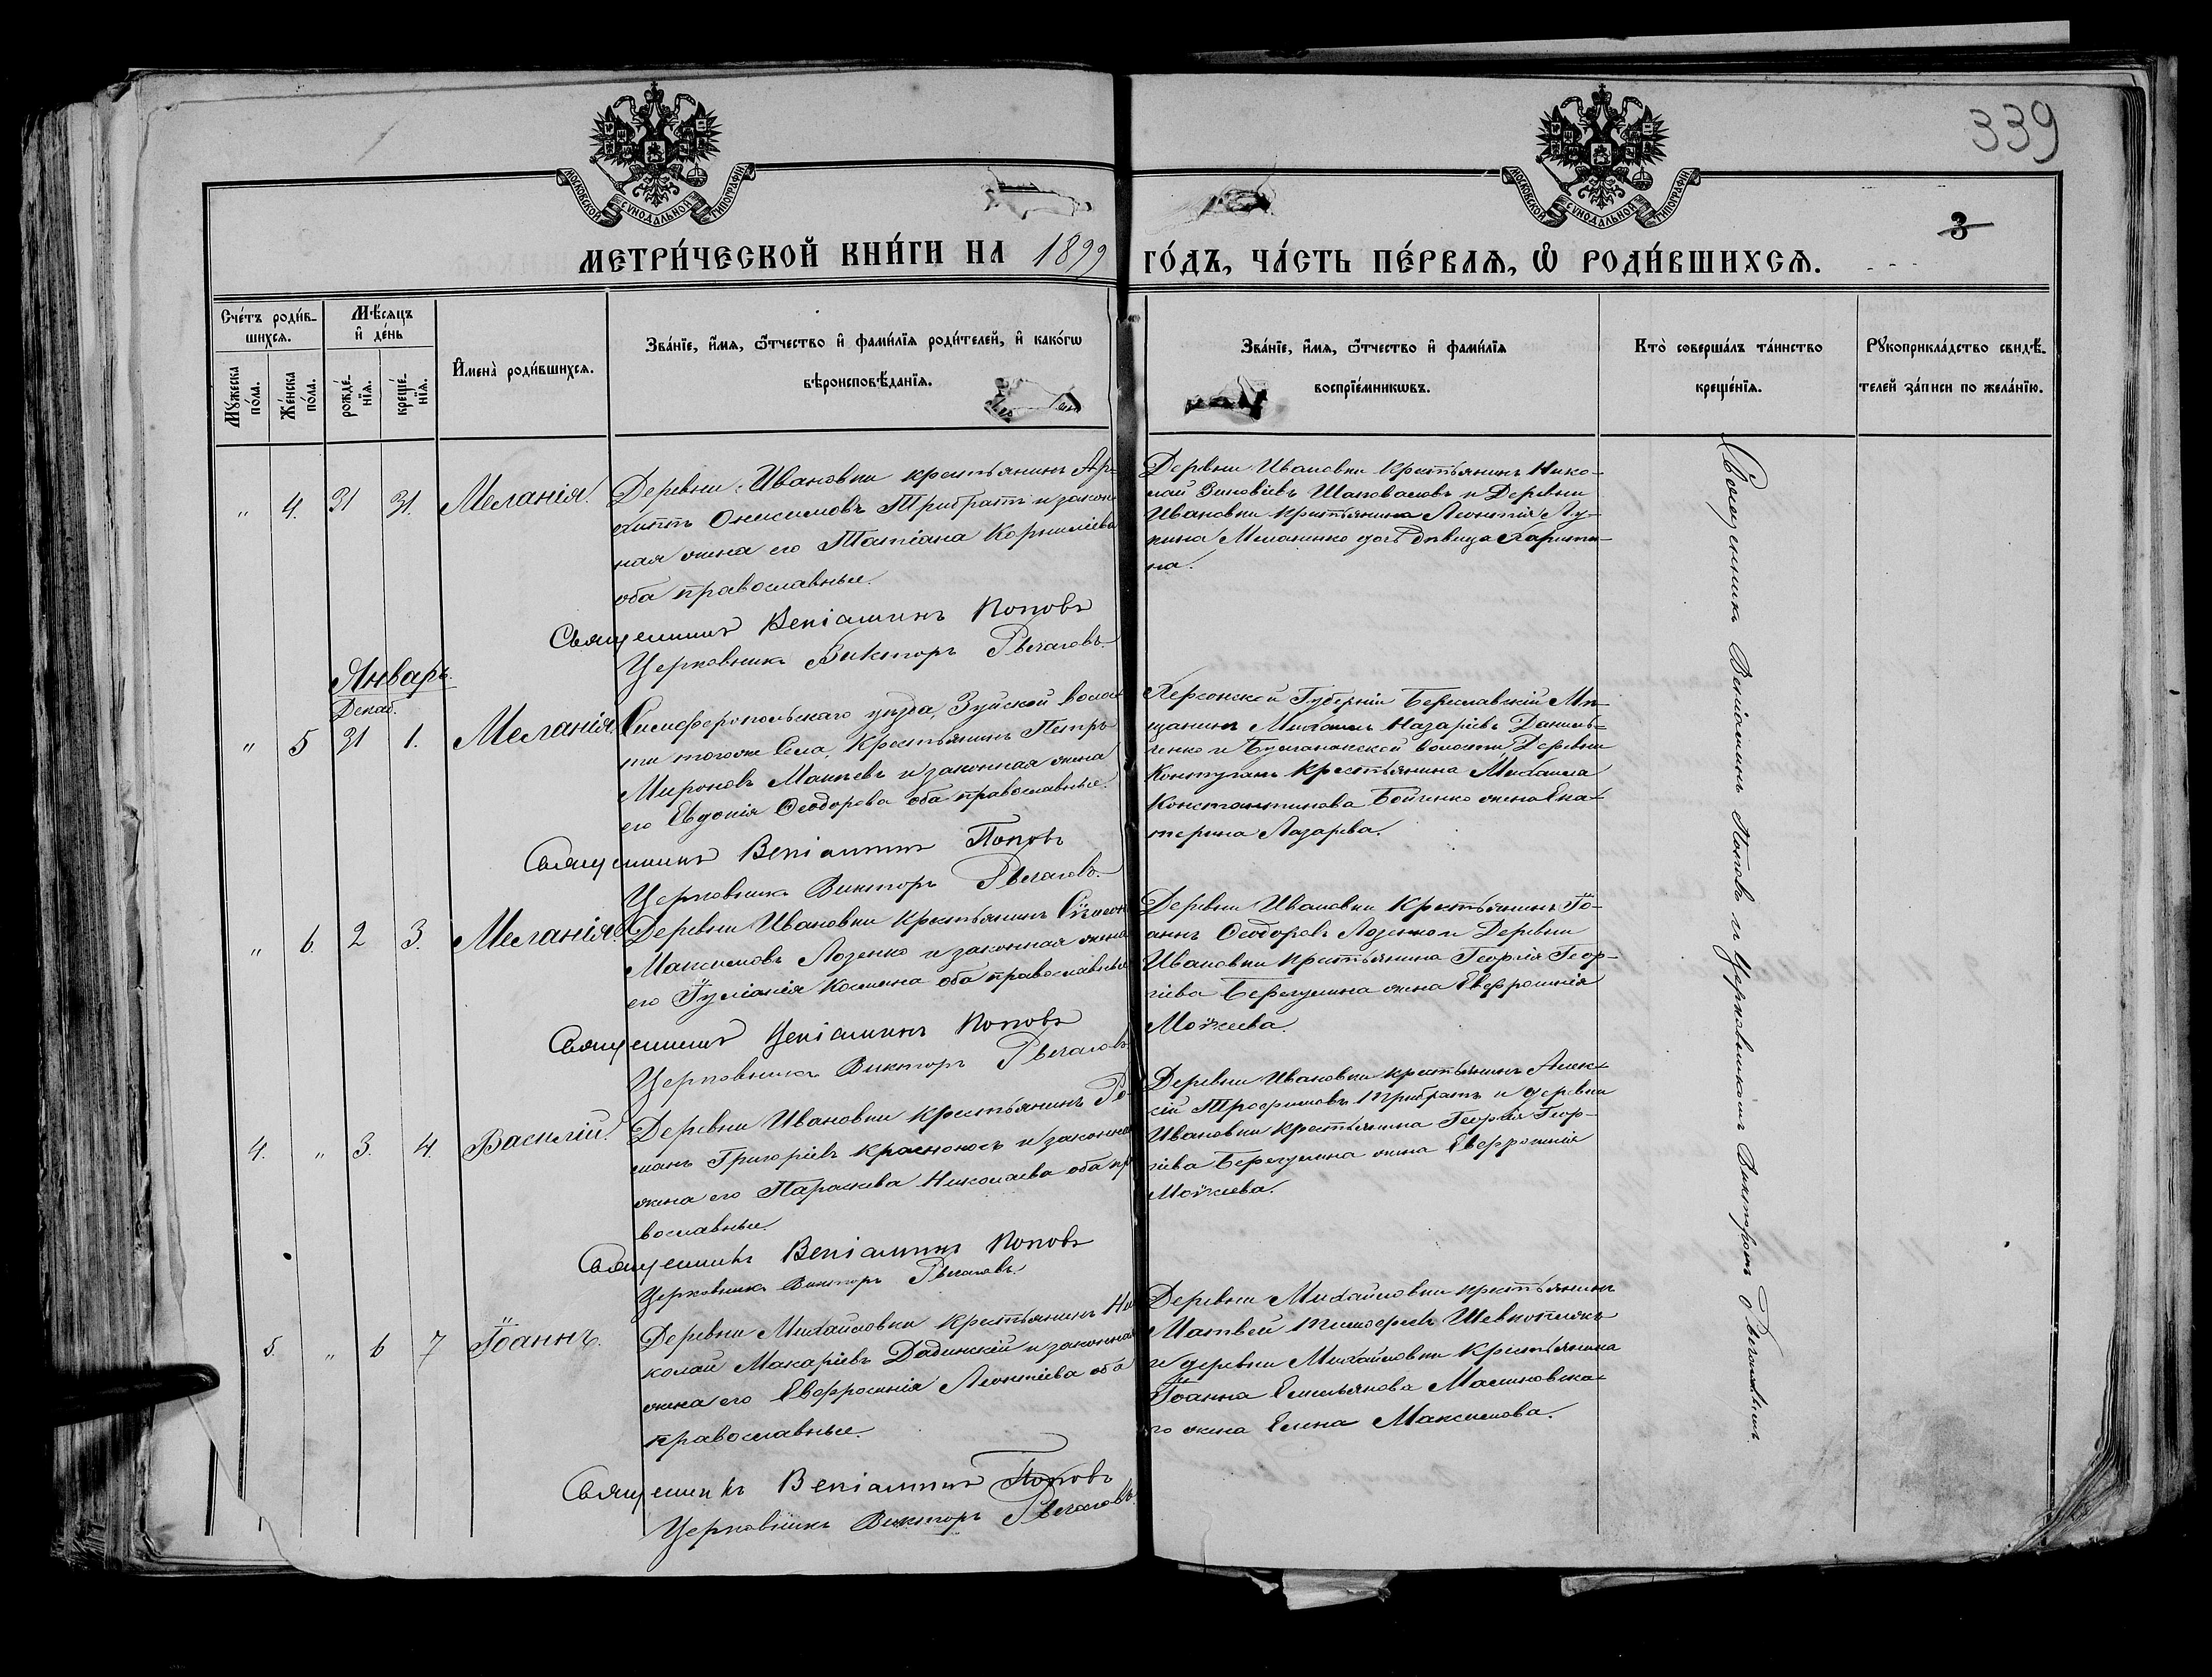 339
3
МОСКОВСКОЙ СУНОДАЛЬНОЙ ТИПОГРАФІИ
МОСКОВСКОЙ СУНОДАЛЬНОЙ ТИПОГРАФІИ
МЕТРИ́ЧЕСКОЙ КНИ́ГИ НА 1899 ГО́ДЪ, ЧА́СТЬ ПЕ́РВАѦ, Ѽ РОДИ́ВШИХСѦ.
Сче́тъ роди́в-
шихсѧ.
Мꙋжеска по́ла.
Же́нска по́ла.
Мѣ́сѧцъ
и де́нь
рожде́-
нїѧ.
креще́-
нїѧ.
Имена̀ роди́вшихсѧ.
Зва́нїе, и́мѧ, ѻ́тчество и фами́лїѧ роди́телей, и како́гѡ
вѣроисповѣ́данїѧ.
Зва́нїе, и́мѧ, ѻ́тчество и фами́лїѧ
воспрїе́мникѡвъ.
Кто̀ соверша́лъ та́инство
креще́нїѧ.
Рꙋкоприкла́дство свидѣ́-
телей за́писи по жела́нїю.
" 4. 31 31. Меланія.
Деревни Ивановки крестьянинъ Ар-
хиппъ Онисимовъ Трибратъ и закон
ная жена его Татіана Корниліева
оба православные.
Священникъ Веніаминъ Поповъ
Церковникъ Викторъ
Деревни Ивановки Крестьянинъ Нико-
лай Зиновіевъ Шаповаловъ и Деревни
Ивановки Крестьянина Леонтія Лу-
кина дочь Дѣвица Харити-
на.
Январь.
Декаб.
" 5 31 1. Меланія.
Симферопольскаго уѣзда, Зуйской волос
ти тогоже Села, Крестьянинъ Петръ
Мироновъ и законная жена
его Евдокія Ѳеодорова оба православные.
Священникъ Веніаминъ Поповъ
Церковникъ Викторъ
Херсонской Губерніи Бериславскій Мѣ-
щанинъ Михаилъ Назаріевъ Даниль-
ченко и Булганакской волости, Деревни
Контуганъ Крестьянина Михаила
Константинова Бойченко жена Ека-
терина Лазарева.
" 6. 2 3. Меланія.
Деревни Ивановки Крестьянинъ Сѵмеон
Максимовъ Лозенко и законная жена
его Іуліанія Космина оба православные
Священникъ Веніаминъ Поповъ
Церковникъ Викторъ
Деревни Ивановки Крестьянинъ Іо-
аннъ Ѳеодоровъ Лозенко и Деревни
Ивановки Крестьянина Георгія Геор-
гіева жена Евфросинія
Моѵсеева.
4. " 3. 4. Василій.
Деревни Ивановки Крестьянинъ Ро-
манъ Григоріевъ Красноносъ и законная
жена его Параскева Николаева оба пр
вославные.
Священникъ Веніаминъ Поповъ
Церковникъ Викторъ
Деревни Ивановки крестьянинъ Алек-
сій Трофимовъ Трибратъ и деревни
Ивановки Крестьянина Георгія Геор-
гіева жена Евфросинія
Моѵсеева.
5. " 6 7 Іоаннъ.
Деревни Михайловки Крестьянинъ Ни
колай Макаріевъ Дадинскій и законная
жена его Евфросинія Леонтіева оба
православные.
Священникъ Веніаминъ Поповъ
Церковникъ Викторъ
Деревни Михайловки крестьянинъ
Матвей Тимофеевъ Шевкоплясъ
и деревни Михайловки Крестьянина
Іоанна Емельянова Малиновска-
го жена Елена Максимова.
Священникъ Веніаминъ Поповъ и Церковникомъ Викторомъ